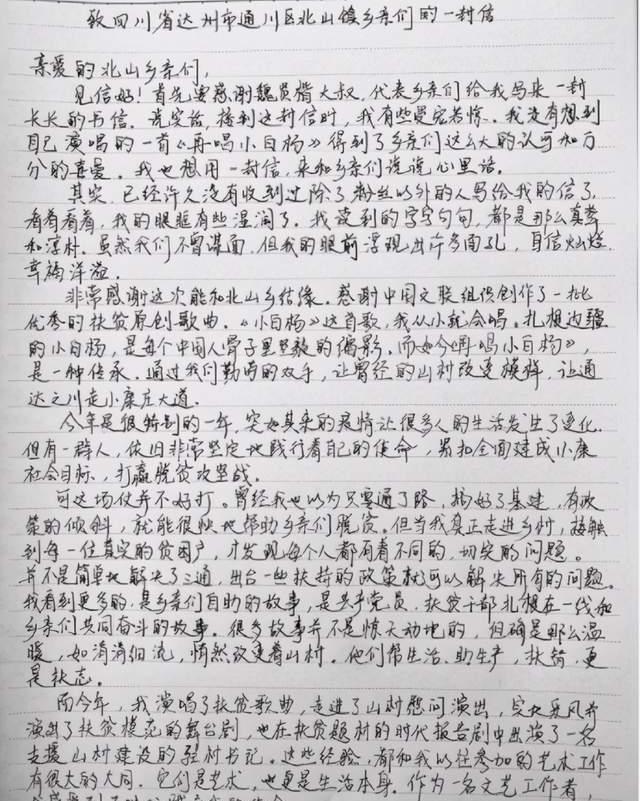 致四川省达州市通川区北山镇乡亲们的一封信
亲爱的北山乡亲们，
见信好！首先要感谢魏贤楷大叔，代表乡亲们给我写来一封
长长的书信。说实话，接到这封信时，我有些受宠若惊。我没有想到
自己演唱的一首《再唱小白杨》得到了乡亲们这么大的认可和万
分的喜爱。我也想用一封信，来和乡亲们说说心里话。
其实，已经许久没有收到过除了粉丝以外的人写给我的信了。
看着看着，我的眼眶有些湿润了。我读到的字字句句，都是那么真挚
和淳朴。虽然我们不曾谋面，但我的眼前浮现出许多面孔，自信灿烂，
幸福洋溢。
非常感谢这次能和北山乡结缘。感谢中国文联组织创作了一批
优秀的扶贫原创歌曲。《小白杨》这首歌，我从小就会唱。扎根边疆
的小白杨，是每个中国人骨子里坚毅的缩影。而如今《再唱小白杨》，
是一种传承。通过我们勤劳的双手，让曾经的山村改变模样，让通
达之川走小康庄大道。
今年是很特别的一年，突如其来的疫情让很多人的生活发生了变化。
但有一群人，依旧非常坚定地践行着自己的使命，紧扣全面建成小康
社会目标，打赢脱贫攻坚战。
可这场仗并不好打。曾经我也以为只要通了路，搞好了基建，有政
策的倾斜，就能很快地帮助乡亲们脱贫。但当我真正走进乡村，接触
到每一位真实的贫困户，才发现每个人都有着不同的，切实的问题。
并不是简单地解决了三通，出台一些扶持的政策就可以解决所有的问题。
我看到更多的，是乡亲们自助的故事，是共产党员，扶贫干部扎根在一线和
乡亲们共同奋斗的故事。很多故事并不是惊天动地的，但确是那么温
暖，如涓涓细流，悄然改变着山村。他们帮生活、助生产，扶智，更
是扶志。
而今年，我演唱了扶贫歌曲，走进了山村慰问演出，
演出了扶贫模范的舞台剧，也在扶贫题材的时代报告剧中出演了一名
支援山村建设的驻村书记。这些经验，都和我以往参加的艺术工作
有很大的不同。它们是艺术，也更是生活本身。作为一名文艺工作者，